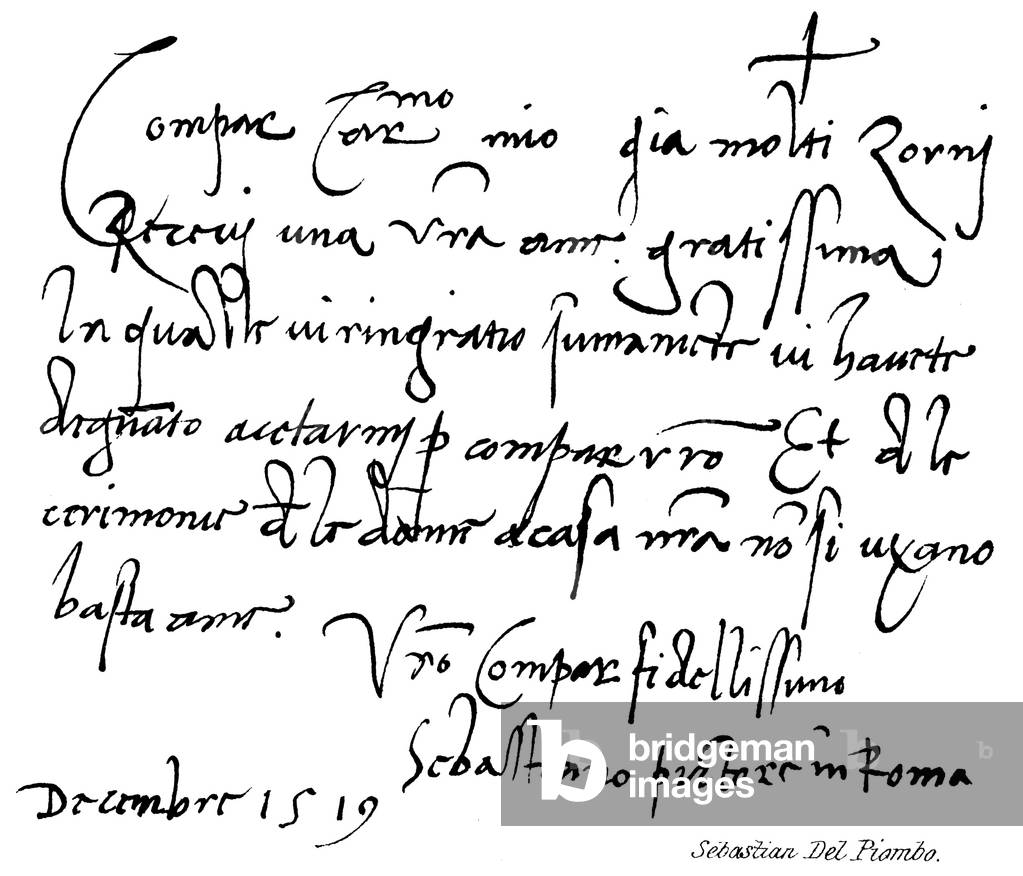 Compar Car mo mio gia molti Zornj
Recevj una vra ame. gratissima
la qual ve vi ringratio sumamēte vi havete
degnato acetarmj p compar vro Et de le
cerimonie de le donne a casa vra nō si uxano
basta ame.
Vro Compar fidellissimo
Sebastiano pictore in Roma
Decembre 1519
bridgeman
images
Sebastian Del Piombo.